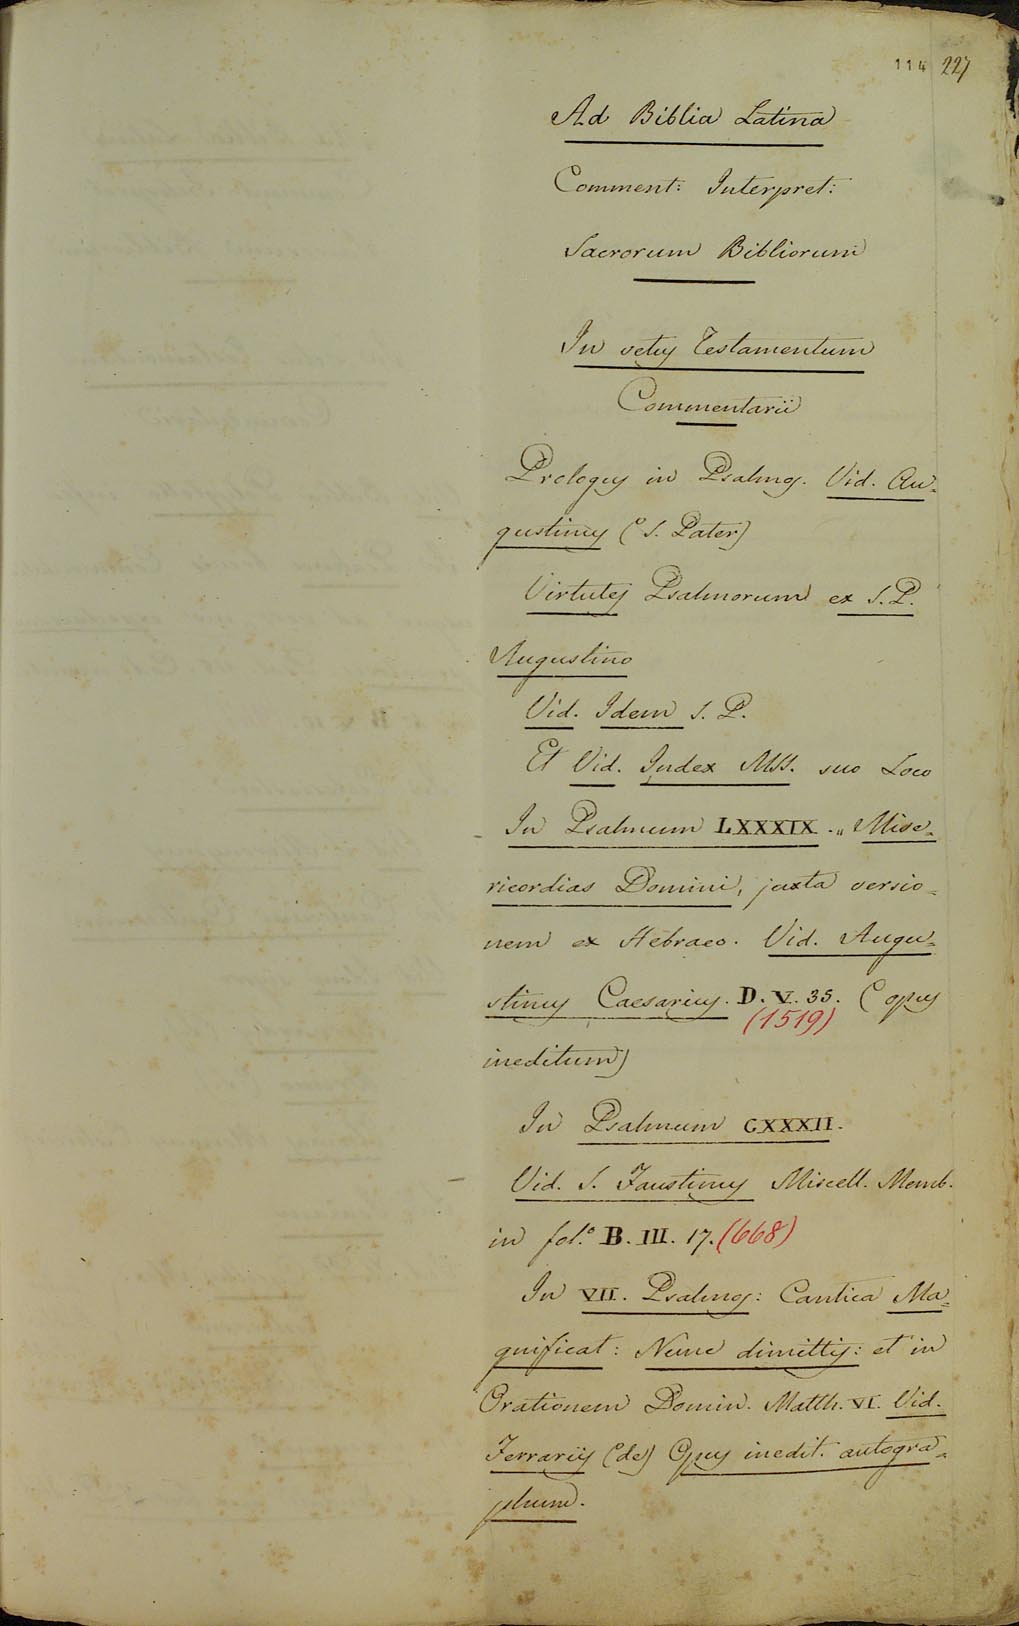 114 227
Ad Biblia Latina
Comment: Interpret:
Sacrorum Bibliorum
In vetus Testamentum
Commentarii
Prologus in Psalmos. Vid. Au=
gustinus (S. Pater)
Virtutes Psalmorum ex S. P.
Augustino
Vid. Idem S. P.
Et Vid. Index MSS. suo Loco
In Psalmum LXXXIX. „ Mise=
ricordias Domini, juxta versio=
nem ex Hebraeo. Vid. Augu=
stinus Caesarius. D. V. 35. (opus
(1519)
ineditum)
In Psalmum CXXXII.
Vid. S. Faustinus Miscell. Memb.
in fol.o B. III. 17. (668)
In VII. Psalmos: Cantica Ma=
gnificat: Nunc dimittis: et in
Orationem Domin. Matth. VI. Vid.
Ferrariis (de) Opus inedit. autogra=
phum.